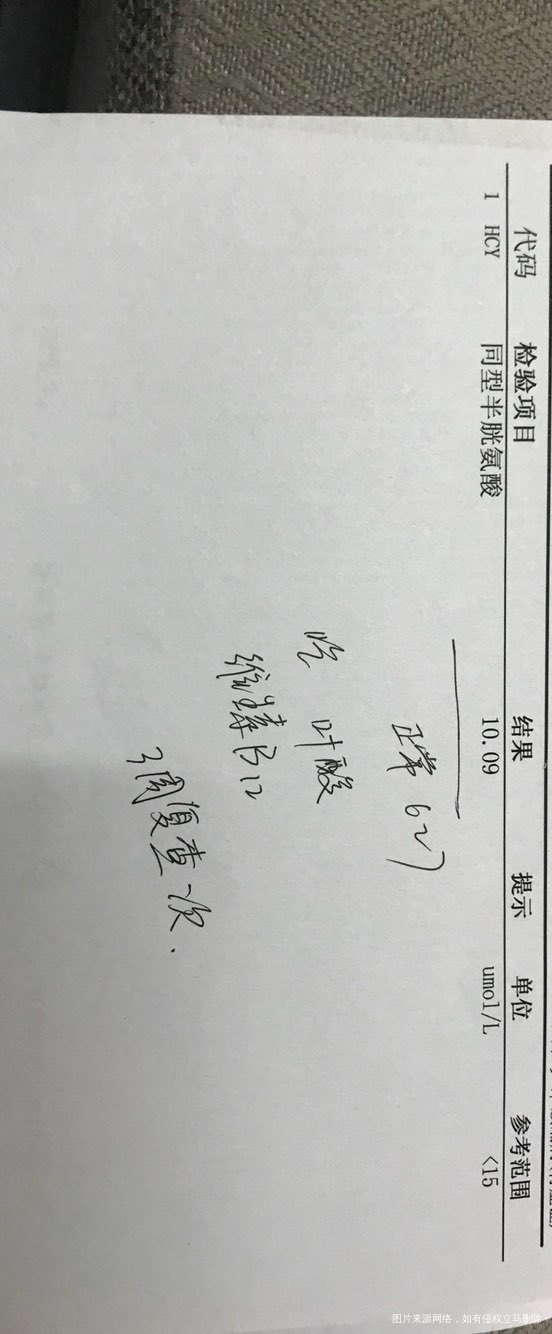 代码 检验项目 结果 提示 单位 参考范围
1 HCY 同型半胱氨酸 10.09 umol/L <15
正常 6~7
吃 叶酸
维生素B12
3周复查一次.
图片来源网络，如有侵权立马删除